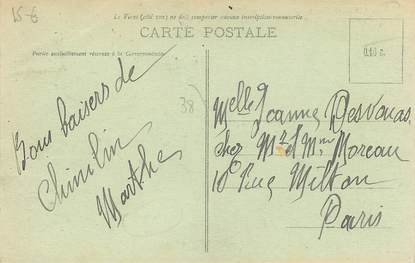 15 €
Le Recto (côté vue) ne doit comporter aucune inscription manuscrite.
CARTE POSTALE
Partie exclusivement réservée à la Correspondance
Bons baisers de
Chimilin
Marthe
38
Melle Jeanne Desvouas
chez Mr et Mme Moreau
10 Rue Milton
Paris